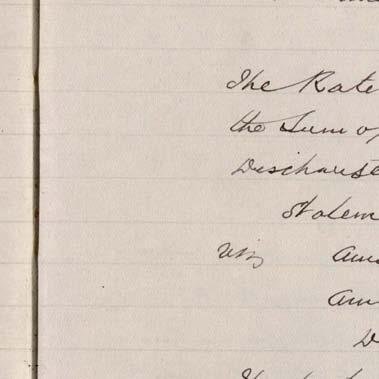 The Rate
the Sum of
Discharge
Statem
viz Am
Am
D